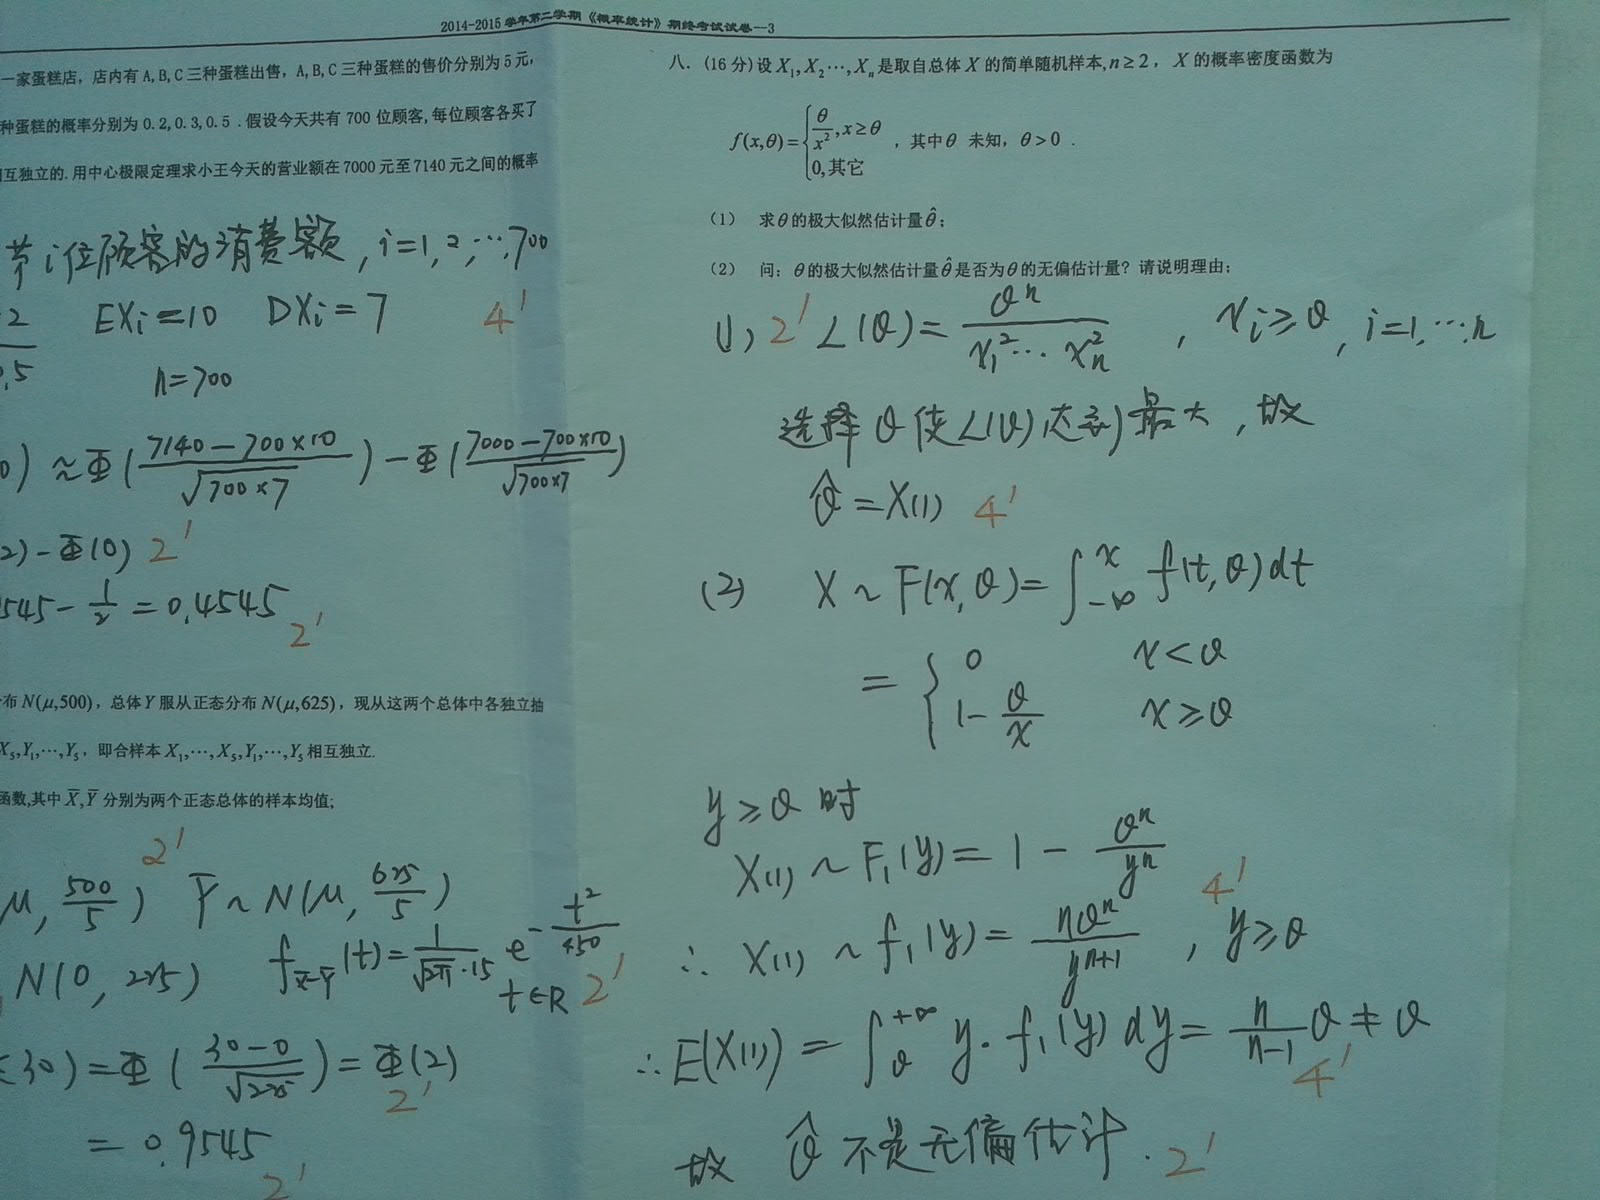 2014-2015 学年第二学期《概率统计》期终考试试卷—3
一家蛋糕店，店内有 A,B,C 三种蛋糕出售，A,B,C 三种蛋糕的售价分别为 5 元，
种蛋糕的概率分别为 0.2,0.3,0.5 .假设今天共有 700 位顾客,每位顾客各买了
相互独立的.用中心极限定理求小王今天的营业额在 7000 元至 7140 元之间的概率
第i位顾客的消费额, i=1,2,…,700
EXi=10 DXi=7 4'
n=700
≈Φ((7140-700×10)/√(700×7)) - Φ((7000-700×10)/√(700×7))
2)-Φ(0) 2'
545 - 1/2 = 0.4545 2'
布 N(μ,500)，总体 Y 服从正态分布 N(μ,625)，现从这两个总体中各独立抽
X₅,Y₁,⋯,Y₅，即合样本 X₁,⋯,X₅,Y₁,⋯,Y₅ 相互独立.
函数,其中 X̄,Ȳ 分别为两个正态总体的样本均值;
μ, 500/5) 2' Ȳ~N(μ, 625/5)
N(0, 225) f_{X̄-Ȳ}(t) = 1/(√(2π)·15) e^{-t²/450}, t∈R 2'
≤30) = Φ((30-0)/√225) = Φ(2) 2'
= 0.9545 2'
八. (16 分) 设 X₁,X₂⋯,Xₙ 是取自总体 X 的简单随机样本,n≥2，X 的概率密度函数为
f(x,θ)={θ/x²,x≥θ 0,其它 ，其中θ 未知，θ>0 .
（1） 求θ的极大似然估计量θ̂;
（2） 问：θ的极大似然估计量θ̂是否为θ的无偏估计量？请说明理由;
(1) 2' L(θ) = θⁿ/(x₁²⋯xₙ²), xᵢ≥θ, i=1,⋯,n
选择θ使L(θ)达到最大,故
θ̂=X(1) 4'
(2) X~F(x,θ)=∫_{-∞}^{x} f(t,θ)dt
= { 0 x<θ
1-θ/x x≥θ
y≥θ时
X(1)~F₁(y)=1-θⁿ/yⁿ 4'
∴ X(1)~f₁(y)=nθⁿ/yⁿ⁺¹, y≥θ
∴E(X(1))=∫_{θ}^{+∞} y·f₁(y)dy=n/(n-1) θ≠θ 4'
故 θ̂不是无偏估计. 2'